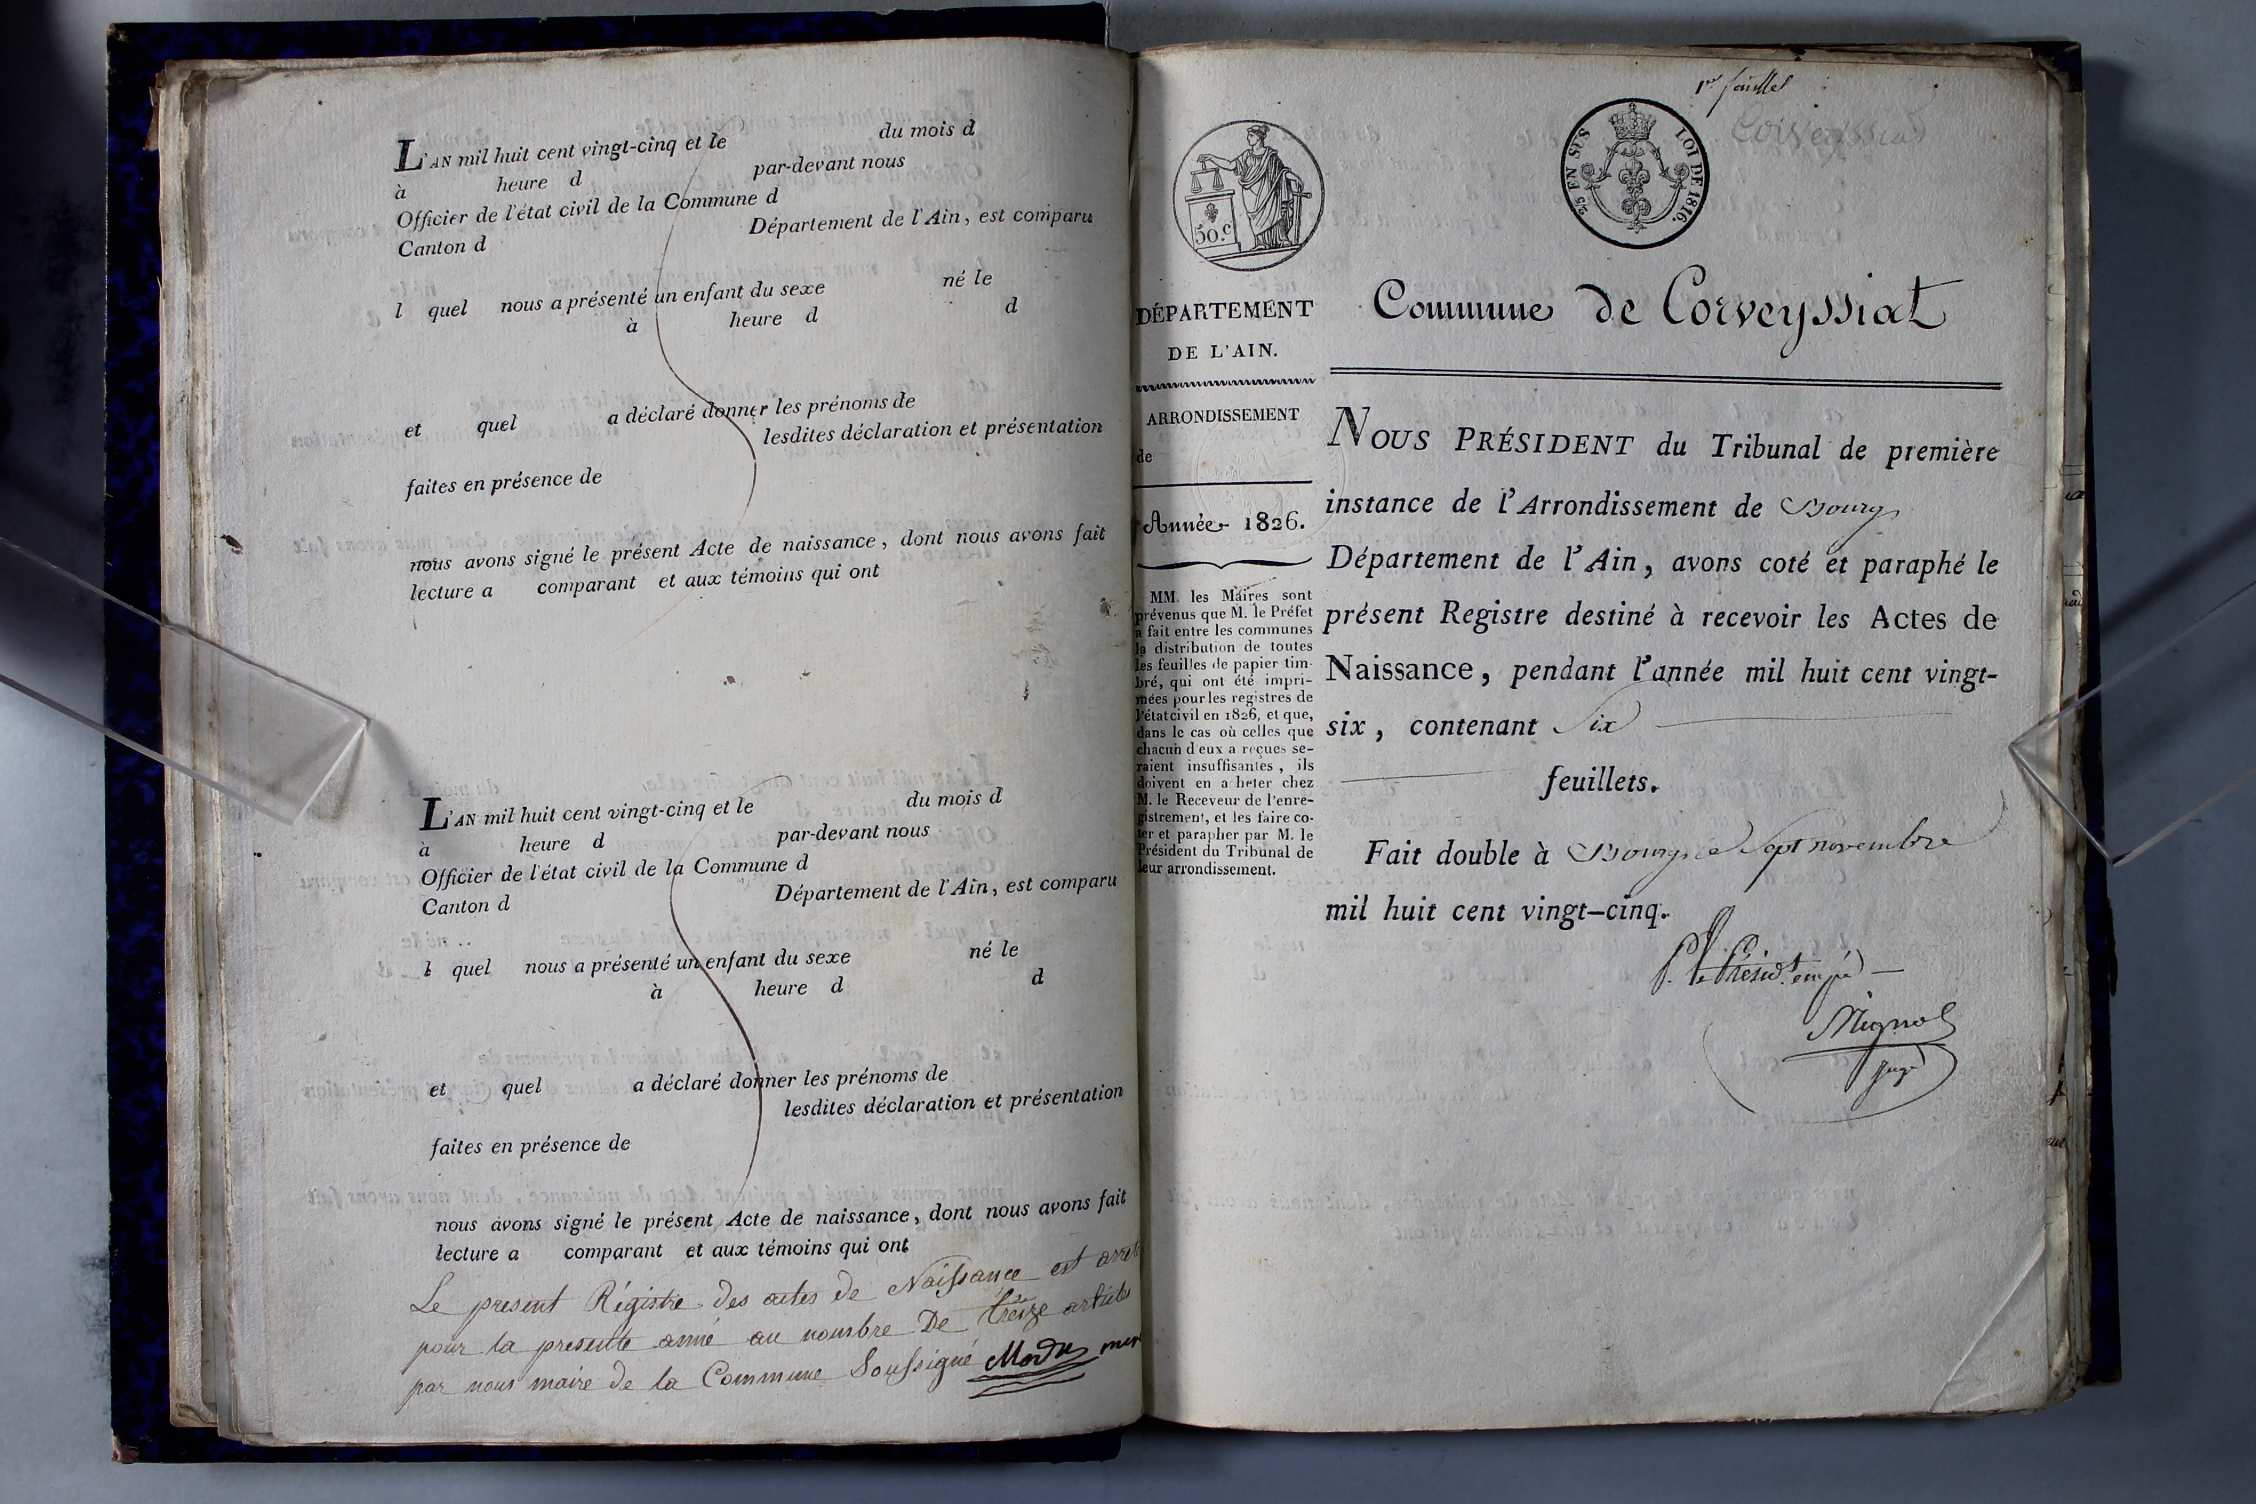 L'AN mil huit cent vingt-cinq et le du mois d
à heure d par-devant nous
Officier de l'état civil de la Commune d
Canton d Département de l'Ain, est comparu
l quel nous a présenté un enfant du sexe né le
à heure d d
et quel a déclaré donner les prénoms de
lesdites déclaration et présentation
faites en présence de
nous avons signé le présent Acte de naissance, dont nous avons fait
lecture a comparant et aux témoins qui ont
L'AN mil huit cent vingt-cinq et le du mois d
à heure d par-devant nous
Officier de l'état civil de la Commune d
Canton d Département de l'Ain, est comparu
l quel nous a présenté un enfant du sexe né le
à heure d d
et quel a déclaré donner les prénoms de
lesdites déclaration et présentation
faites en présence de
nous avons signé le présent Acte de naissance, dont nous avons fait
lecture a comparant et aux témoins qui ont
Le present Régistre des actes de Naissance est arreté
pour la presente anné au nombre De treize articles
par nous maire de la Commune Soussigné
1er feuillet
Corveyssiat
50.c
25 EN SUS LOI DE 1816.
DÉPARTEMENT
DE L'AIN.
ARRONDISSEMENT
de
Année 1826.
MM. les Maires sont
prévenus que M. le Préfet
a fait entre les communes
la distribution de toutes
les feuilles de papier tim-
bré, qui ont été impri-
mées pour les registres de
l'état civil en 1826, et que,
dans le cas où celles que
chacun d'eux a reçues se-
raient insuffisantes, ils
doivent en acheter chez
M. le Receveur de l'enre-
gistrement, et les faire co-
ter et parapher par M. le
Président du Tribunal de
leur arrondissement.
Commune de Corveyssiat
NOUS PRÉSIDENT du Tribunal de première
instance de l'Arrondissement de Bourg
Département de l'Ain, avons coté et paraphé le
présent Registre destiné à recevoir les Actes de
Naissance, pendant l'année mil huit cent vingt-
six, contenant Six
feuillets.
Fait double à Bourg le Sept novembre
mil huit cent vingt-cinq.
P. le Présidt. empé
Mignot
juge